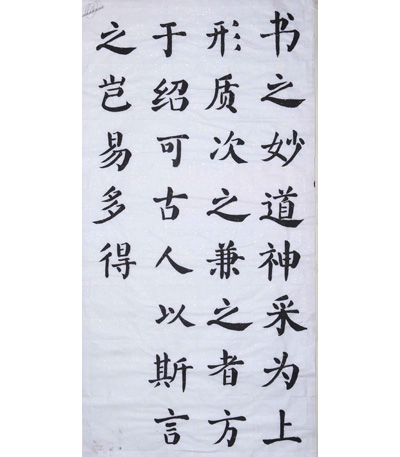 书之妙道神采为上
形质次之兼之者方
于绍可古人以斯言
之岂易多得